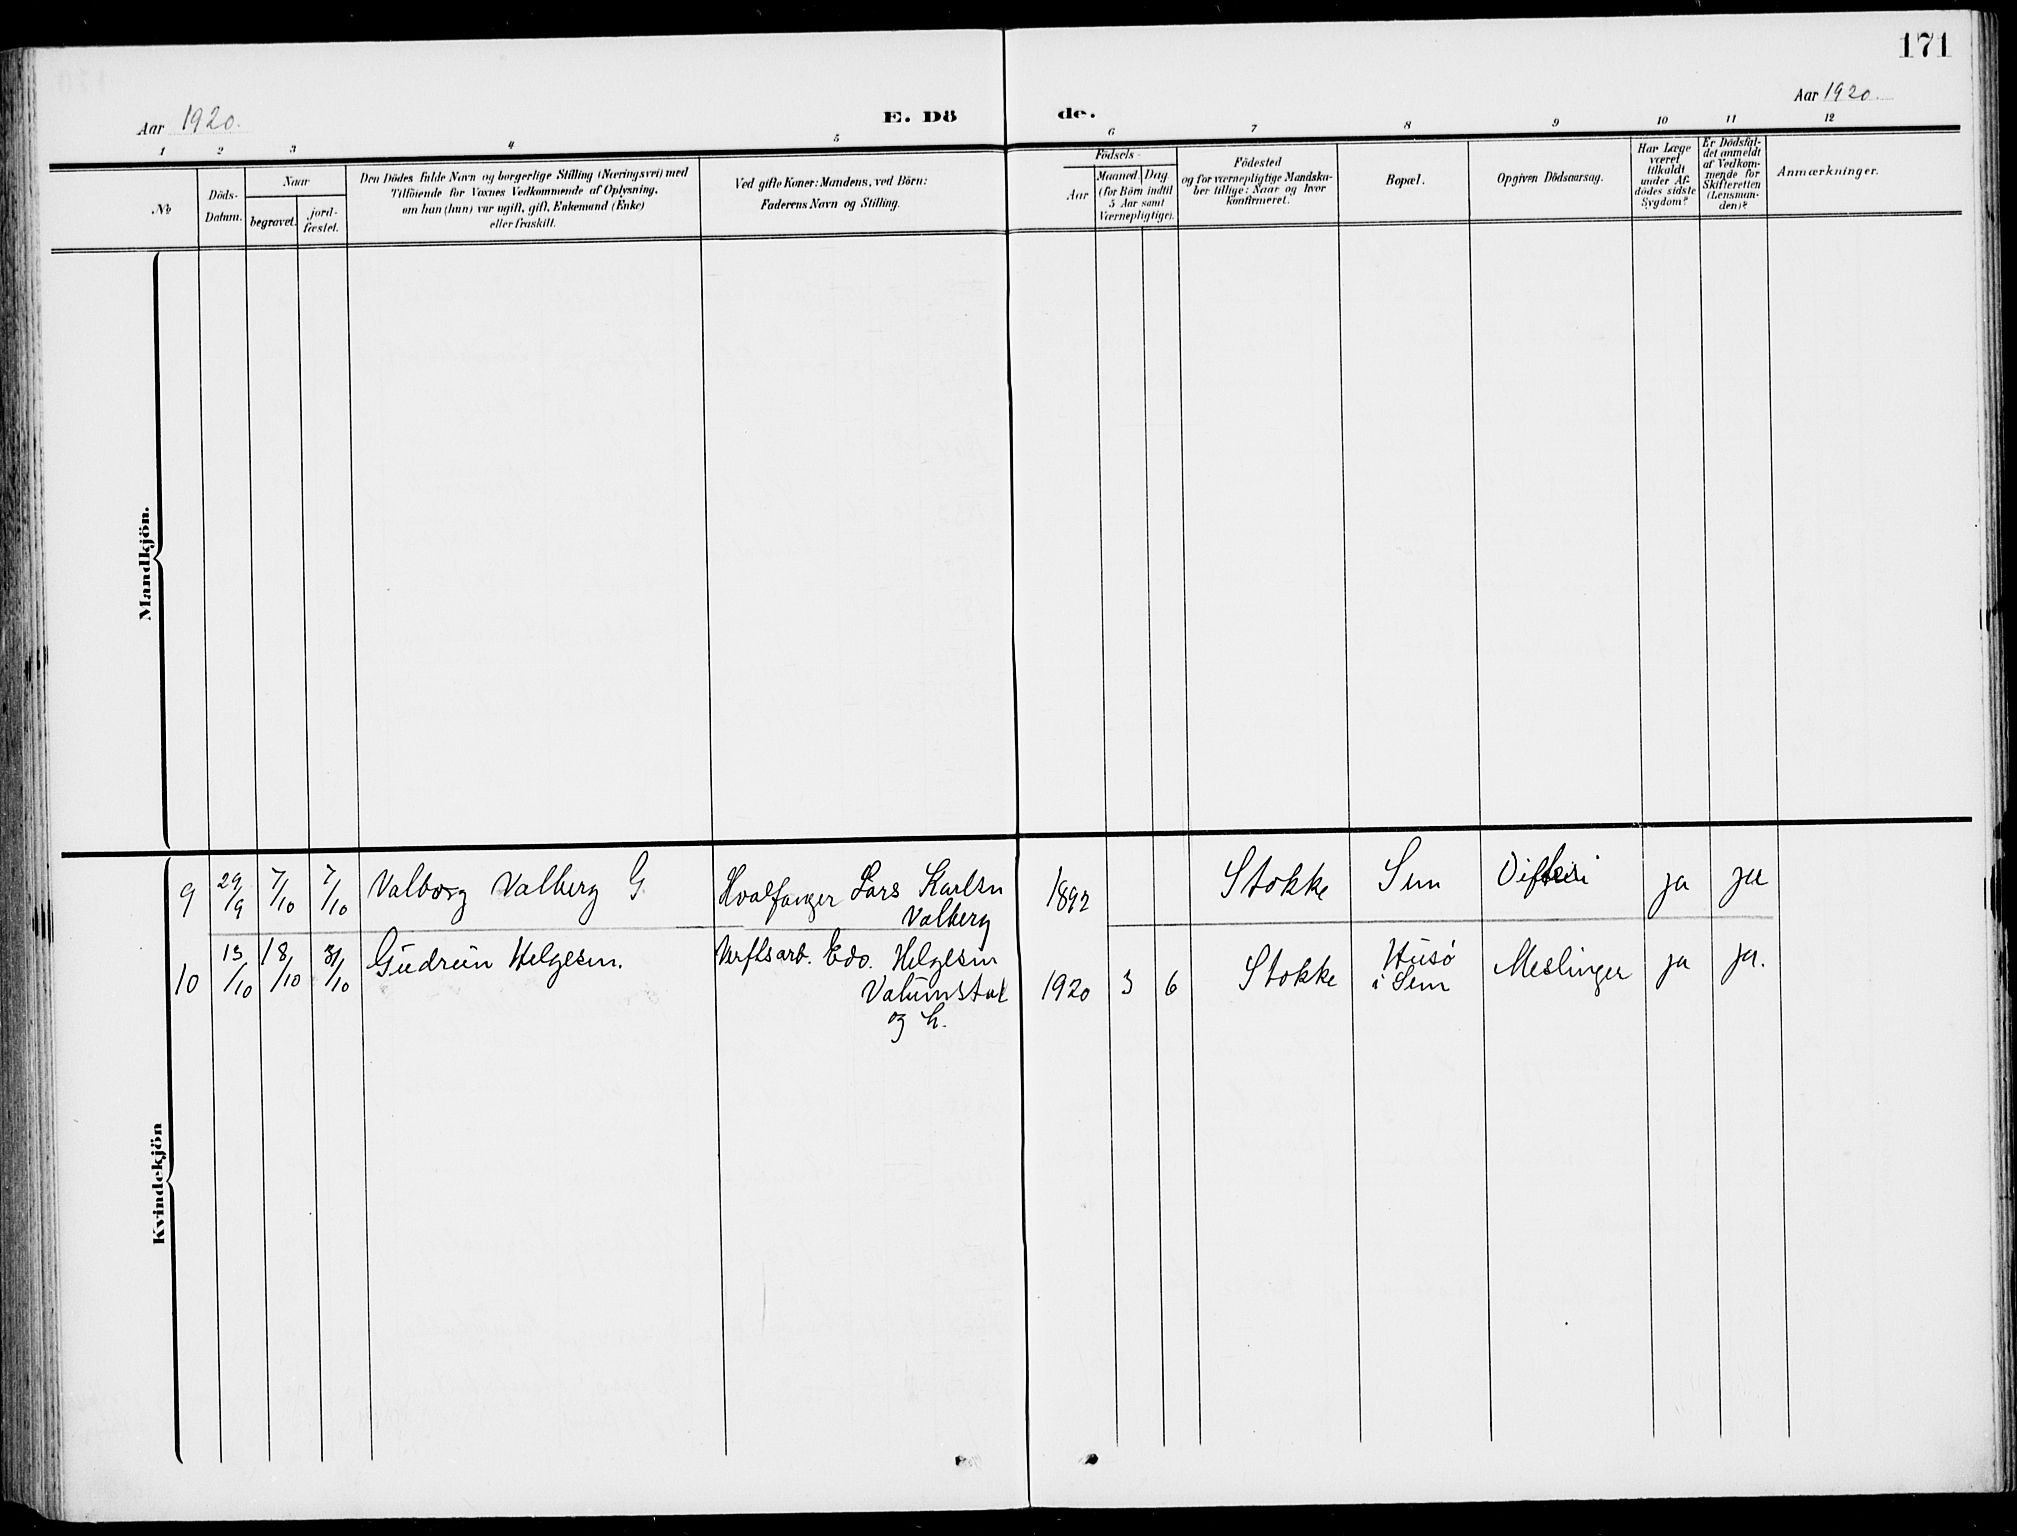 171
Aar 1920.
E. Döde.
Aar 1920.
1 2 3 4 5 6 7 8 9 10 11 12
No
Döds-
Datum.
Naar
begravet.
jord-
fæstet.
Den Dödes fulde Navn og borgerlige Stilling (Næringsvei) med
Tilföiende for Voxnes Vedkommende af Oplysning,
om han (hun) var ugift, gift, Enkemand (Enke)
eller fraskilt.
Ved gifte Koner: Mandens, ved Börn:
Faderens Navn og Stilling.
Födsels-
Aar
Maaned
Dag
(for Börn indtil
5 Aar samt
Værnepligtige).
Födested
og for værnepligtige Mandska-
ber tillige: Naar og hvor
konfirmeret.
Bopæl.
Opgiven Dödsaarsag.
Har Læge
været
tilkaldt
under Af-
dödes sidste
Sygdom?
Er Dödsfal-
det anmeldt
af Vedkom-
mende for
Skifteretten
(Lensman-
den)?
Anmærkninger.
Mandkjön.
Kvindekjön
9 29/9 7/10 7/10 Valborg Valberg G. Hvalfanger Lars Karlsen 1892 Stokke Sem Difteri ja ja
Valberg
10 13/10 18/10 31/10 Gudrun Helgesen. Verftsarb. Edv. Helgesen 1920 3 6 Stokke Husø Meslinger ja ja.
i Sem
og h.